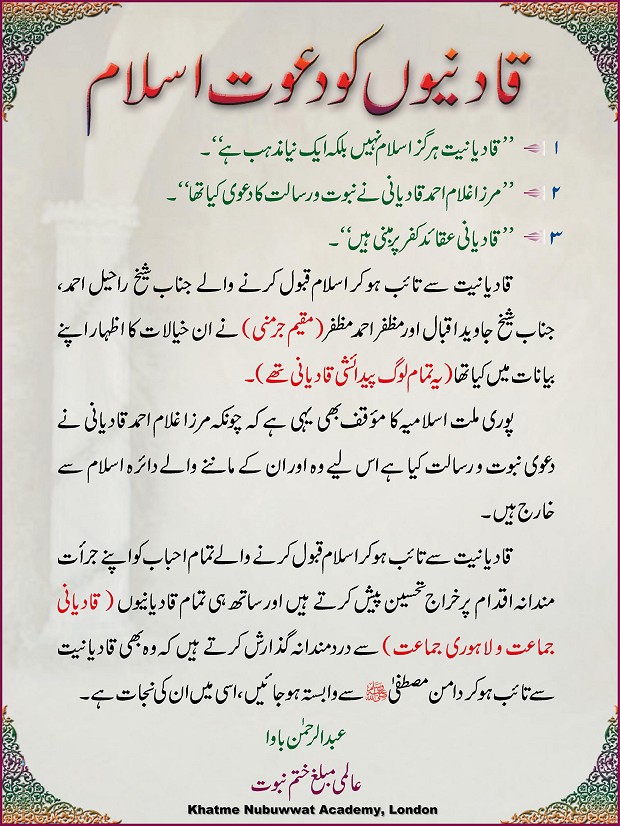 قادنیوں کو دعوت اسلام
۱ ’’قادیانیت ہرگز اسلام نہیں بلکہ ایک نیا مذہب ہے‘‘۔
۲ ’’مرزا غلام احمد قادیانی نے نبوت و رسالت کا دعوی کیا تھا‘‘۔
۳ ’’قادیانی عقائد کفر پر مبنی ہیں‘‘۔
قادیانیت سے تائب ہو کر اسلام قبول کرنے والے جناب شیخ راحیل احمد،
جناب شیخ جاوید اقبال اور مظفر احمد مظفر (مقیم جرمنی) نے ان خیالات کا اظہار اپنے
بیانات میں کیا تھا (یہ تمام لوگ پیدائشی قادیانی تھے)۔
پوری ملت اسلامیہ کا مؤقف بھی یہی ہے کہ چونکہ مرزا غلام احمد قادیانی نے
دعوی نبوت و رسالت کیا ہے اس لیے وہ اور ان کے ماننے والے دائرہ اسلام سے
خارج ہیں۔
قادیانیت سے تائب ہو کر اسلام قبول کرنے والے تمام احباب کو اپنے جرأت
مندانہ اقدام پر خراج تحسین پیش کرتے ہیں اور ساتھ ہی تمام قادیانیوں (قادیانی
جماعت و لاہوری جماعت) سے دردمندانہ گذارش کرتے ہیں کہ وہ بھی قادیانیت
سے تائب ہو کر دامن مصطفیٰ ﷺ سے وابستہ ہو جائیں، اسی میں ان کی نجات ہے۔
عبدالرحمٰن باوا
عالمی مبلغ ختم نبوت
Khatme Nubuwwat Academy, London